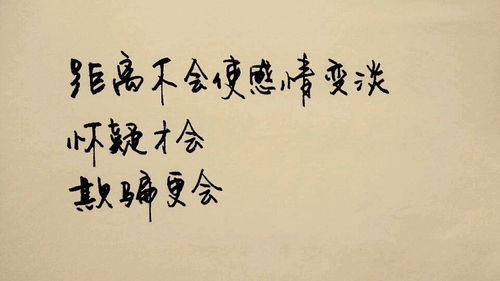 距离不会使感情变淡
怀疑才会
欺骗更会